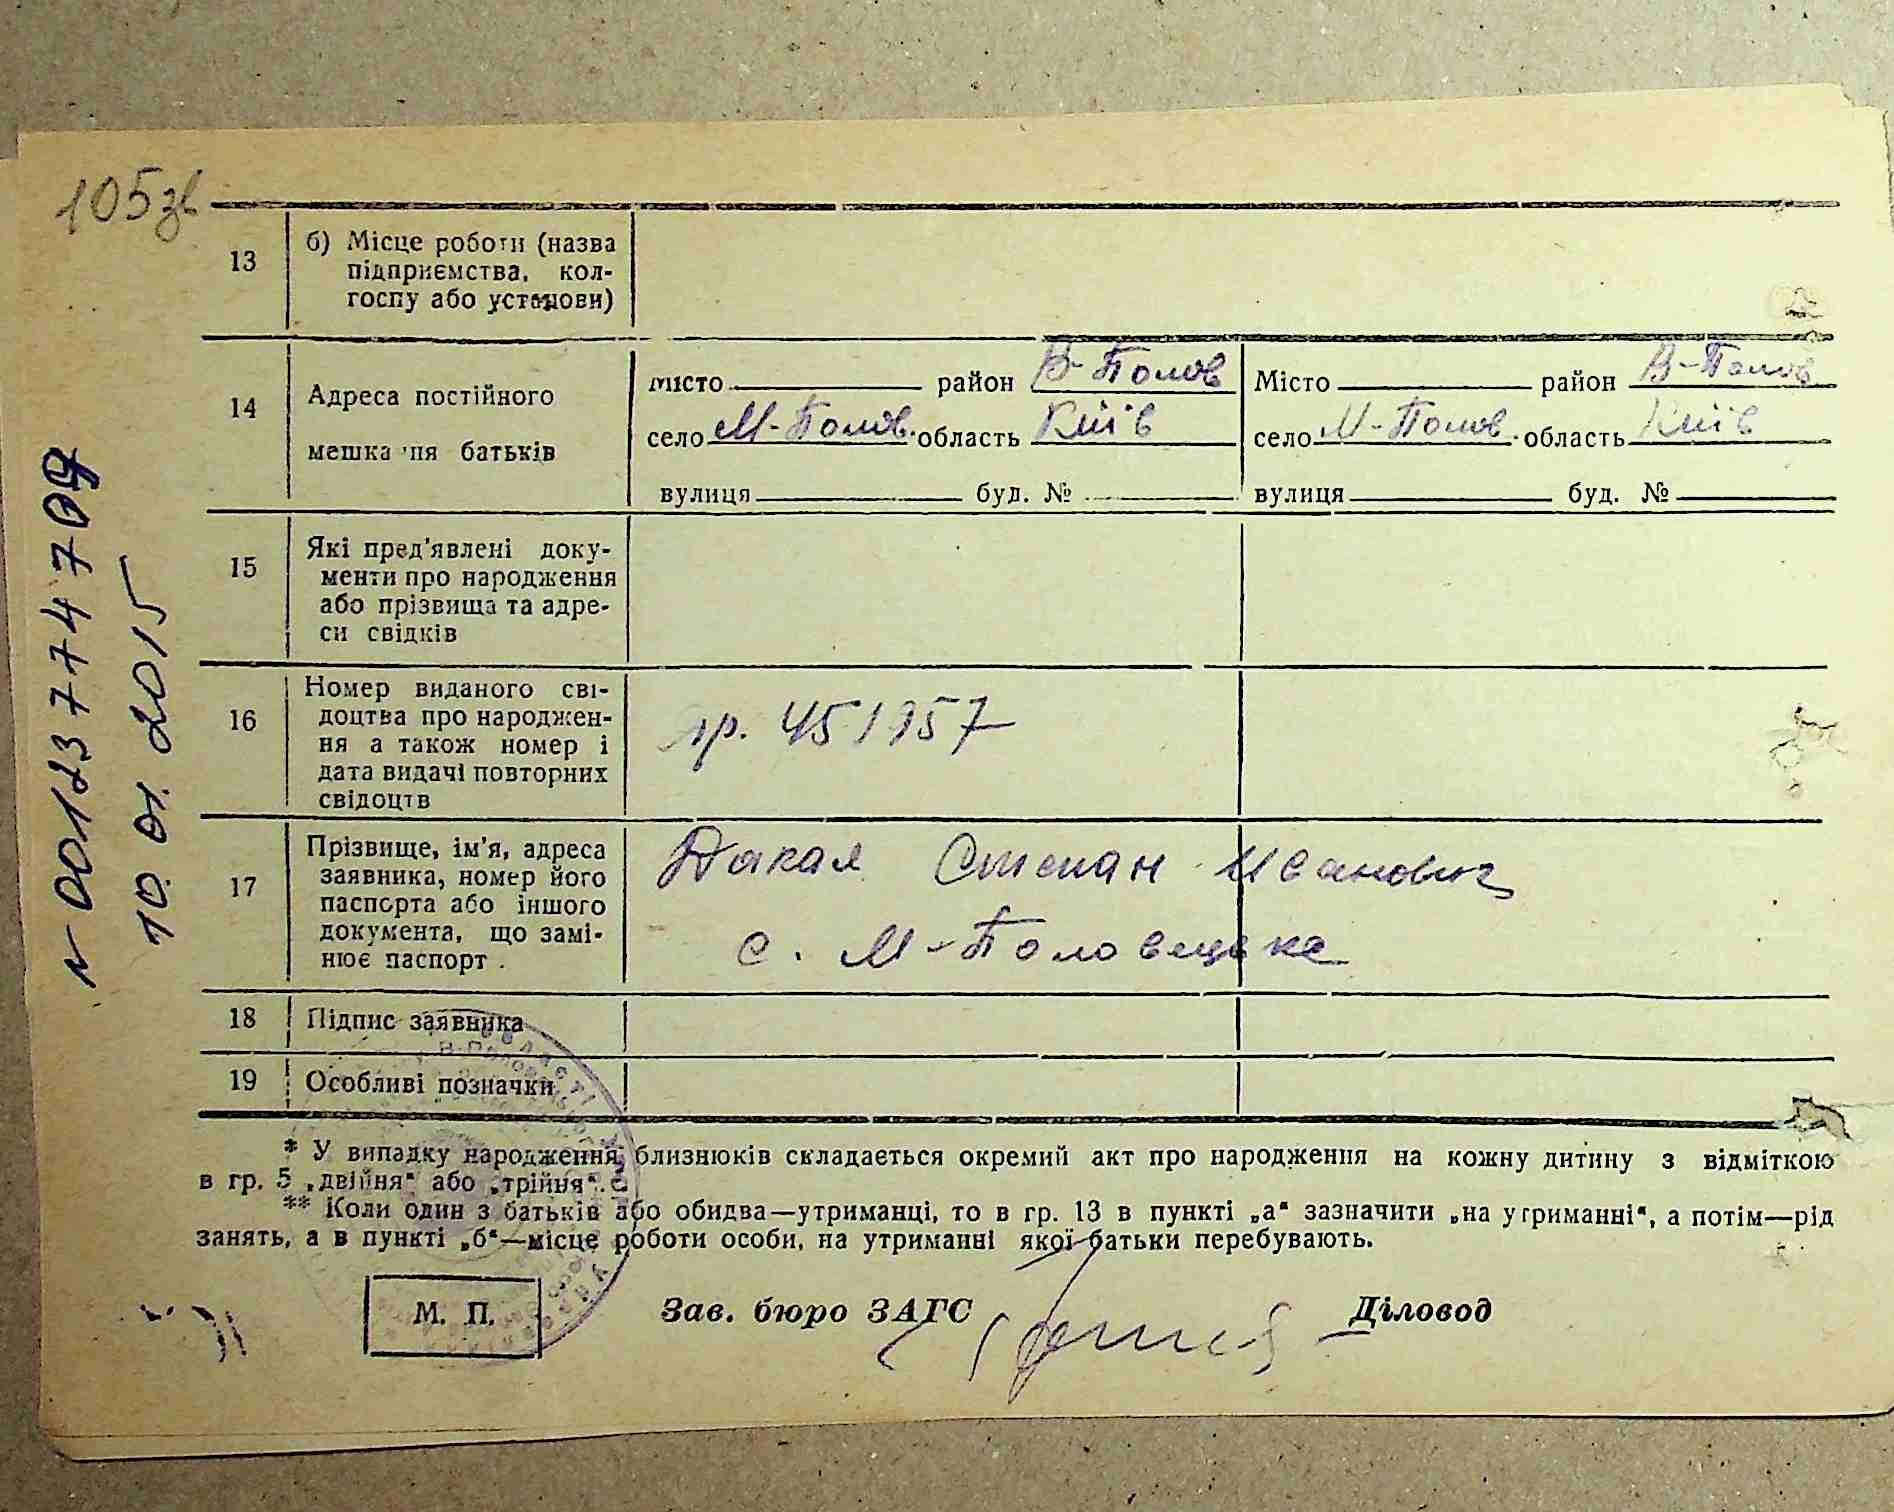 105зв
13 б) Місце роботи (назва
підприємства, кол-
госпу або установи)
14 Адреса постійного
мешка ня батьків
місто район В-Полов Місто район В-Полов
село М-Полов. область Київ село М-Полов. область Київ
вулиця буд. № вулиця буд. №
15 Які пред'явлені доку-
менти про народження
або прізвища та адре-
си свідків
16 Номер виданого сві-
доцтва про народжен-
ня а також номер і
дата видачі повторних
свідоцтв
451957
17 Прізвище, ім'я, адреса
заявника, номер його
паспорта або іншого
документа, що замі-
нює паспорт.
Степан Иванович
с. М-Половецьке
18 Підпис заявника
19 Особливі позначки
* У випадку народження близнюків складається окремий акт про народження на кожну дитину з відміткою
в гр. 5 „двійня" або „трійня".
** Коли один з батьків або обидва—утриманці, то в гр. 13 в пункті „а" зазначити „на утриманні", а потім—рід
занять, а в пункті „б"—місце роботи особи, на утриманні якої батьки перебувають.
М. П. Зав. бюро ЗАГС Діловод
N 00123774709
10.01.2015